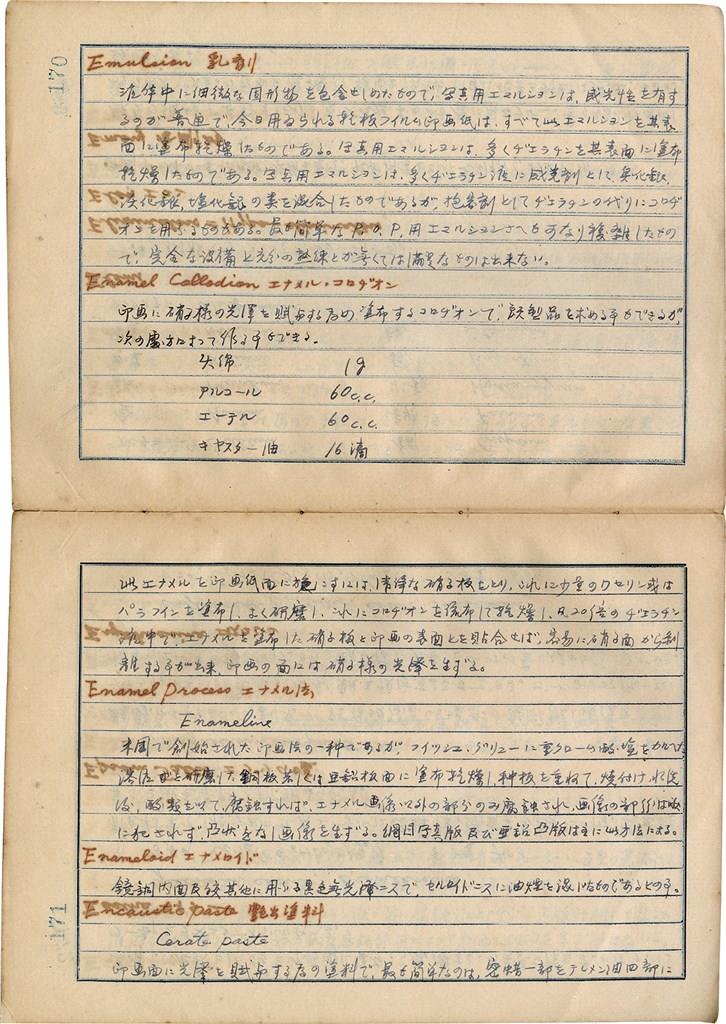 170
Emulsion 乳剤
液体中に細微な固形物を包含せしめたもので、写真用エマルションは、感光性を有す
るのが普通で、今日用ゐられる乾板フイルム印画紙は、すべて此エマルションを其表
面に塗布乾燥したものである。写真用エマルションは、多くヂェラチンを其表面に塗布
乾燥したものである。写真用エマルションは、多くヂェラチン液に感光剤として臭化銀、
沃化銀、塩化銀の类を混合したものであるが、抱着剤としてヂェラチンの代りにコロヂ
オンを用ふるものがある。最も簡単な P.O.P.用エマルションさへもかなり複雑したもの
で、完全な設備と充分の熟練とが無くては満足なものは出来ない。
Enamel Collodion エナメル・コロヂオン
印画に硝子様の光沢を賦与する為め塗布するコロヂオンで、既製品を求める事もできるが、
次の処方によって作る事もできる。
火綿 1g
アルコール 60c.c.
エーテル 60c.c.
キヤスター油 16滴
此エナメルを印画紙面に施こすには、清浄な硝子板をとり、これに少量のワセリン或は
パラフインを塗布し、よく研磨し、これにコロヂオンを流布して乾燥し、且20倍のヂェラチン
液中で、エナメルを塗布した硝子板と印画の表面とを貼合せば、容易に硝子面から剥
離する事が出来、印画の面には硝子様の光沢を生ずる。
Enamel Process エナメル法
Enameline
米国で創始された印画法の一種であるが、フイッシュ・グリューに重クローム酸塩をかへた
溶液を研磨した銅板若しくは亜鉛板面に塗布乾燥し、種板を重ねて、焼付け、水洗
後、酸類を以て、腐蝕すれば、エナメル画像以外の部分のみ腐蝕され、画像の部分は酸
に犯されず、凸状をなし画像を生ずる。網目写真版及び亜鉛凸版は主に此方法による。
Enameloid エナメロイド
鏡胴内面及絞其他に用ふる黒色無光沢ニスで、セルロイドニスに油煙を混じたものであるとの事。
Encaustic paste 艶出塗料
Cerate paste
印画面に光沢を賦与する為の塗料で、最も簡単なのは、蜜蝋一部をテレメン油四部に
171